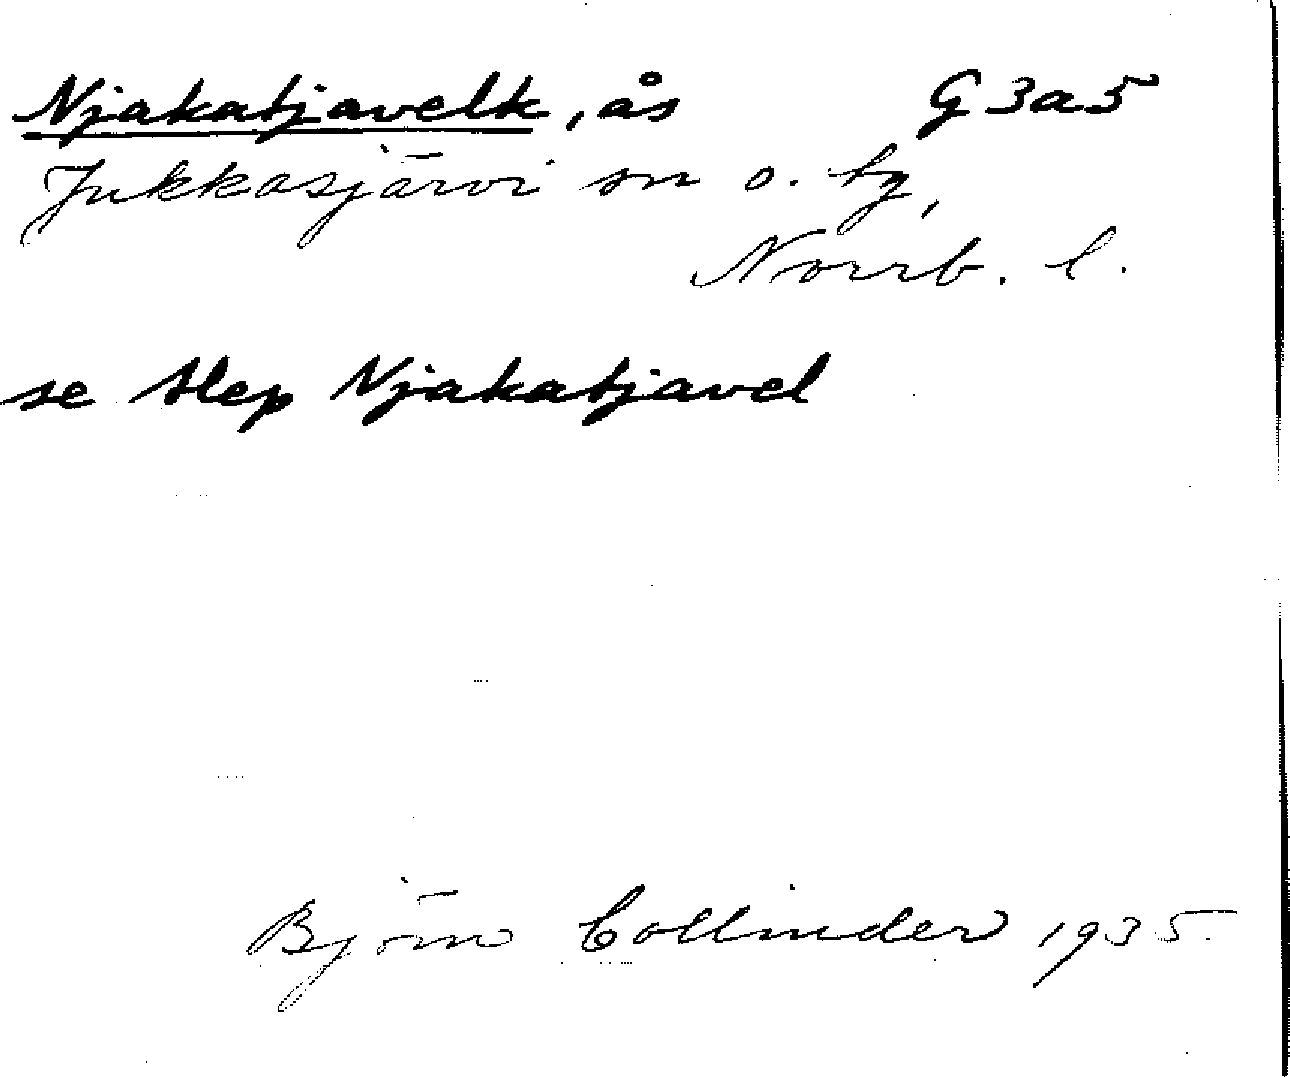 Njakatjavelk, ås G3a5
Jukkasjärvi sn o. tg,
Norrb. l.
se Slep Njakatjavel
Björn Collinder 1935.